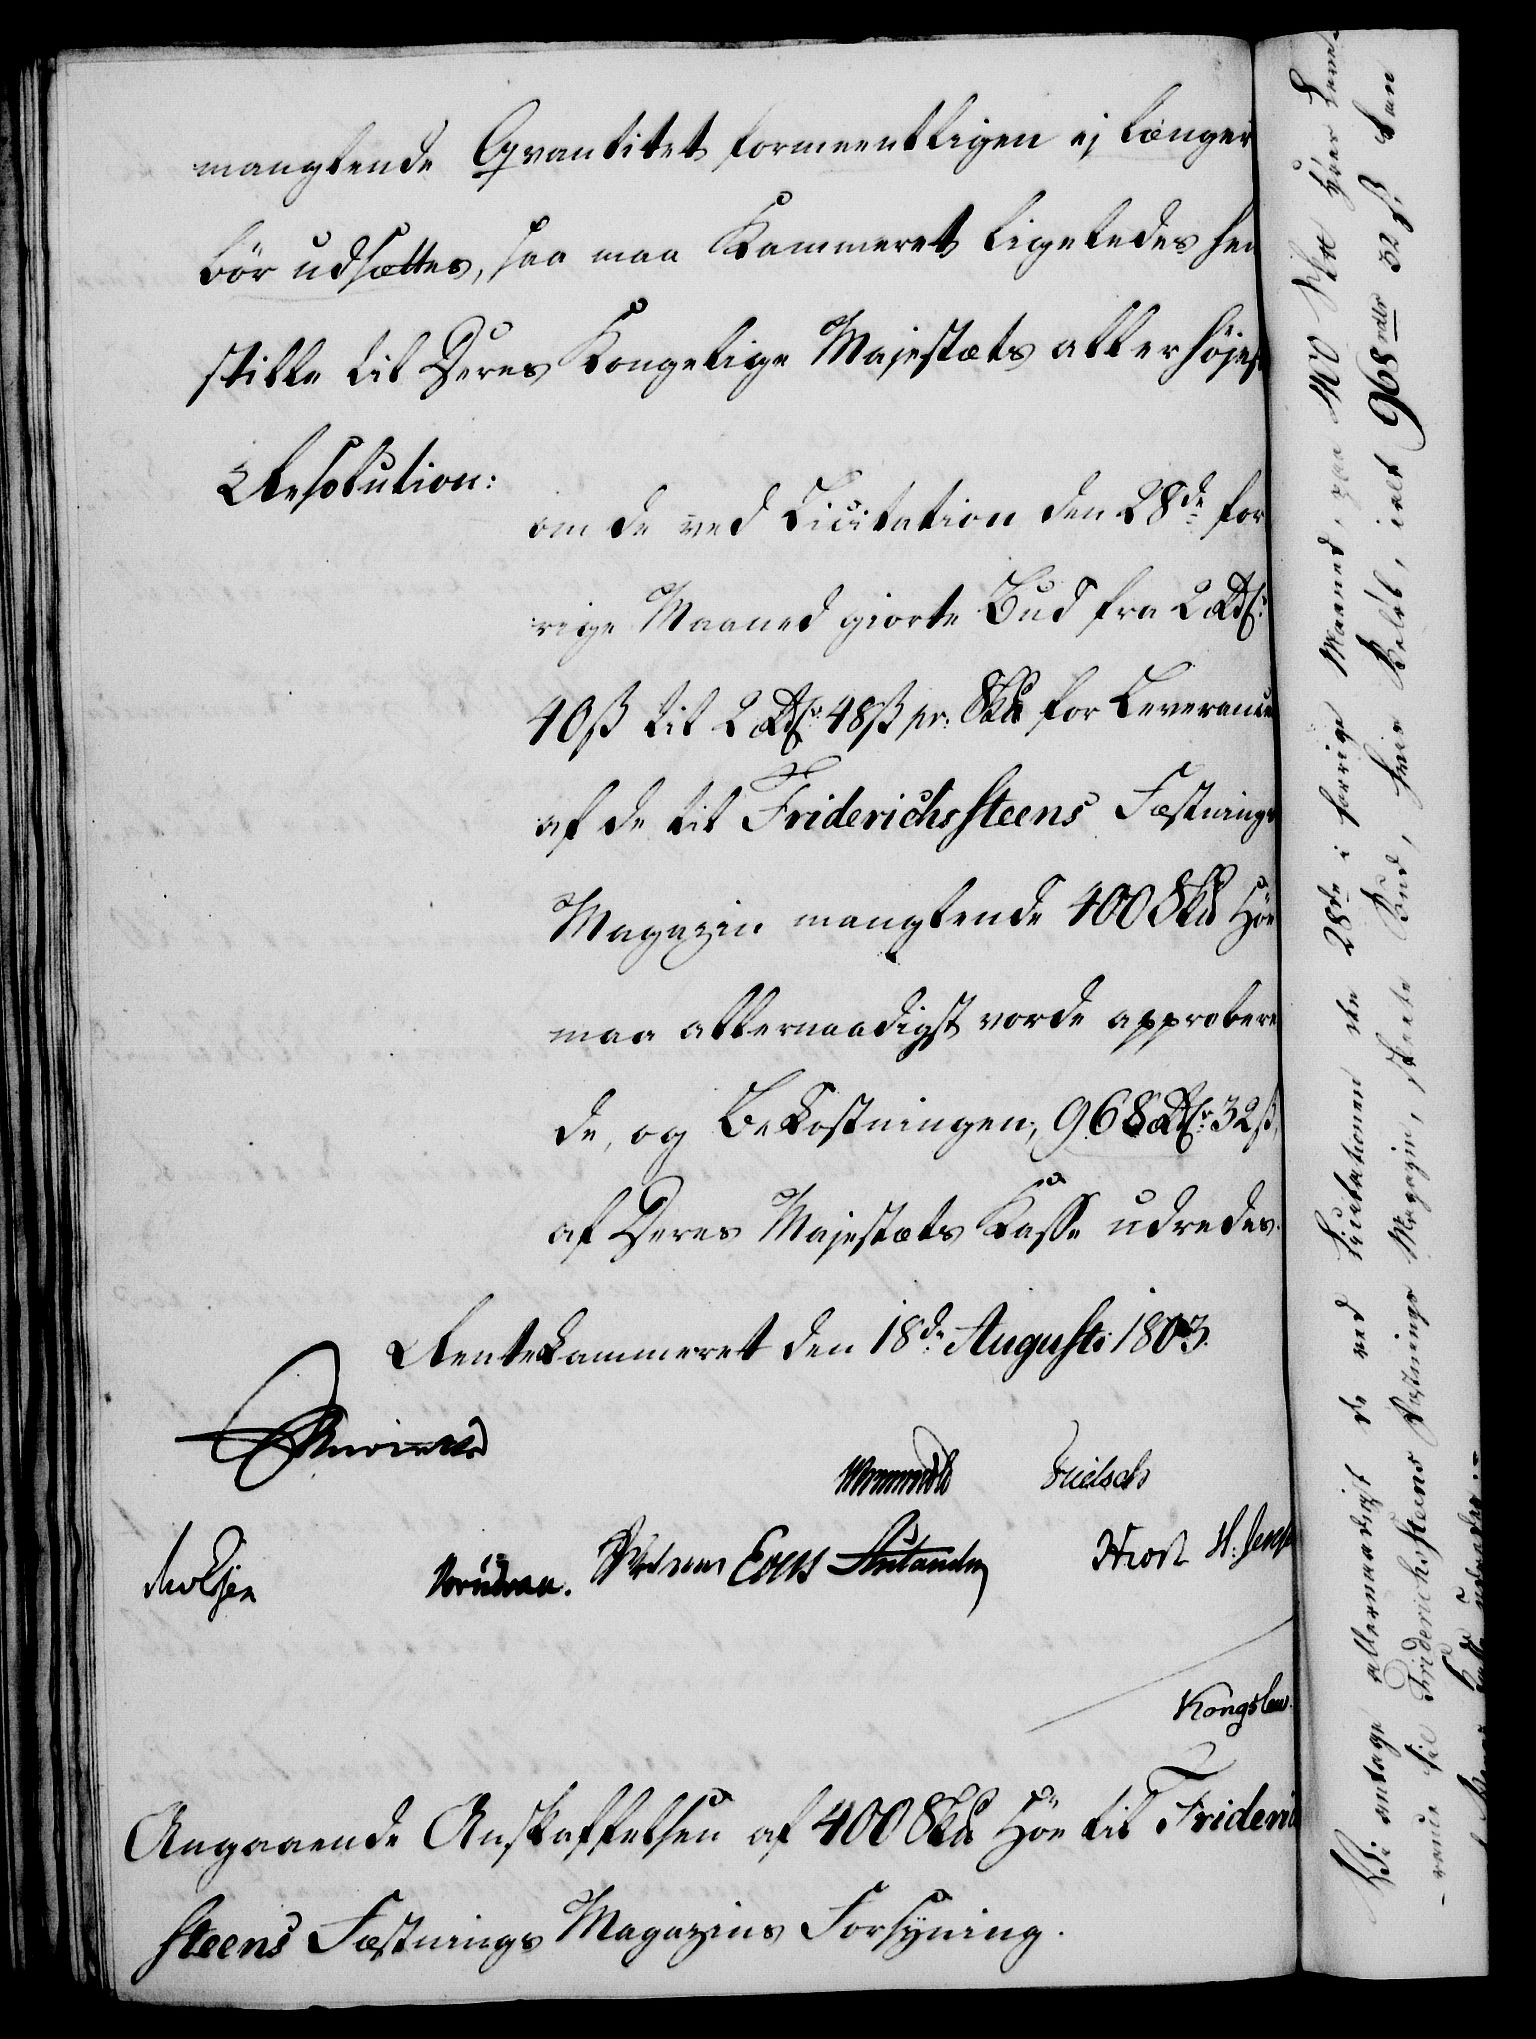 manglende Qvantitet formeentligen ej længer
bör udsættes, saa maa Kammeret ligeledes hen
stille til Deres Kongelige Majestæts allerhöjest
Resolution:
om de ved Licitation den 28de for
rige Maaned giorte Bud fra 2 Rdlr:
40 ß til 2 Rdlr: 48 ß pr: Sku for Leverance
af de til Friderichssteens Fæstnings
Magazin manglende 400 Sku Höe
maa allernaadigst vorde approbere
de, og Bekostningen, 968 Rdlr: 32 ß,
af Deres Majestæts Kasse udredes.
Rentekammeret den 18de Augusti 1803.
Wormskiold
Knudsen. Eeus
Hiort H: Jensen
Kongslew.
Angaaende Anskaffelsen af 400 Sku Höe til Frideric
steens Fæstnings Magazins Forsyning.
Vi antage allernaadigst de ved Licitationen den 28de i forrige Maaned, paa 400 Höes Leve-
rance til Friderichssteens Fæstnings Magazin, skeete Bud, hvis Belöb, ialt 968 rdlr 32 ß kan
udredes.